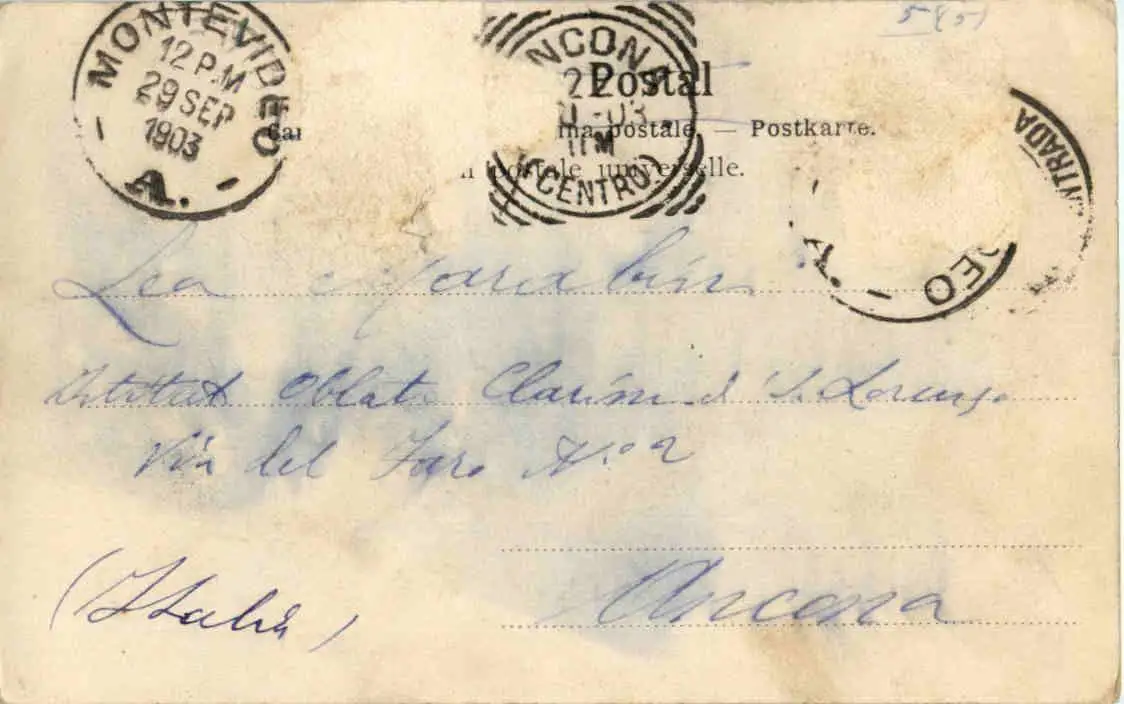 MONTEVIDEO
12 P.M
29 SEP
1903
A.
NCONA
22
-03
11M
(CENTRO)
5(5)
Postal
postale. — Postkarte.
postale universelle.
ENTRADA
DEO
A.
Lea
Oblate Clarine d S. Lorenzo
Via del Faro No 2
Ancona
(Italia)